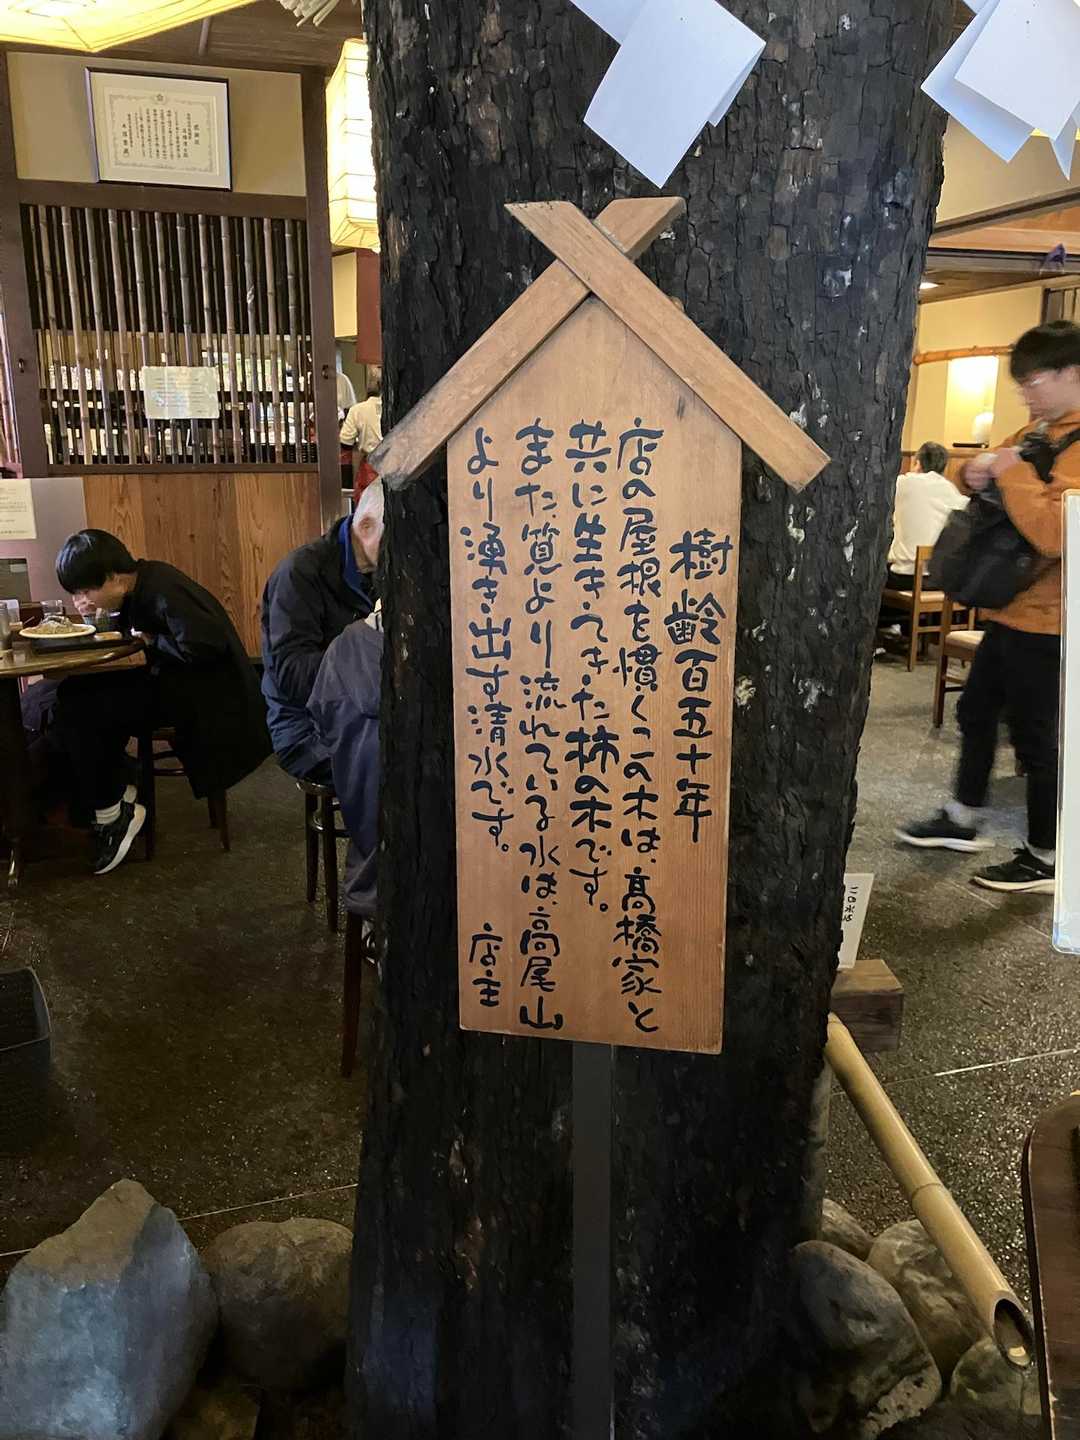 樹齢百五十年
店の屋根を慣くこの木は、高橋家と
共に生きてきた柿の木です。
また、筧より流れている水は、高尾山
より湧き出す清水です。
店主
感謝状